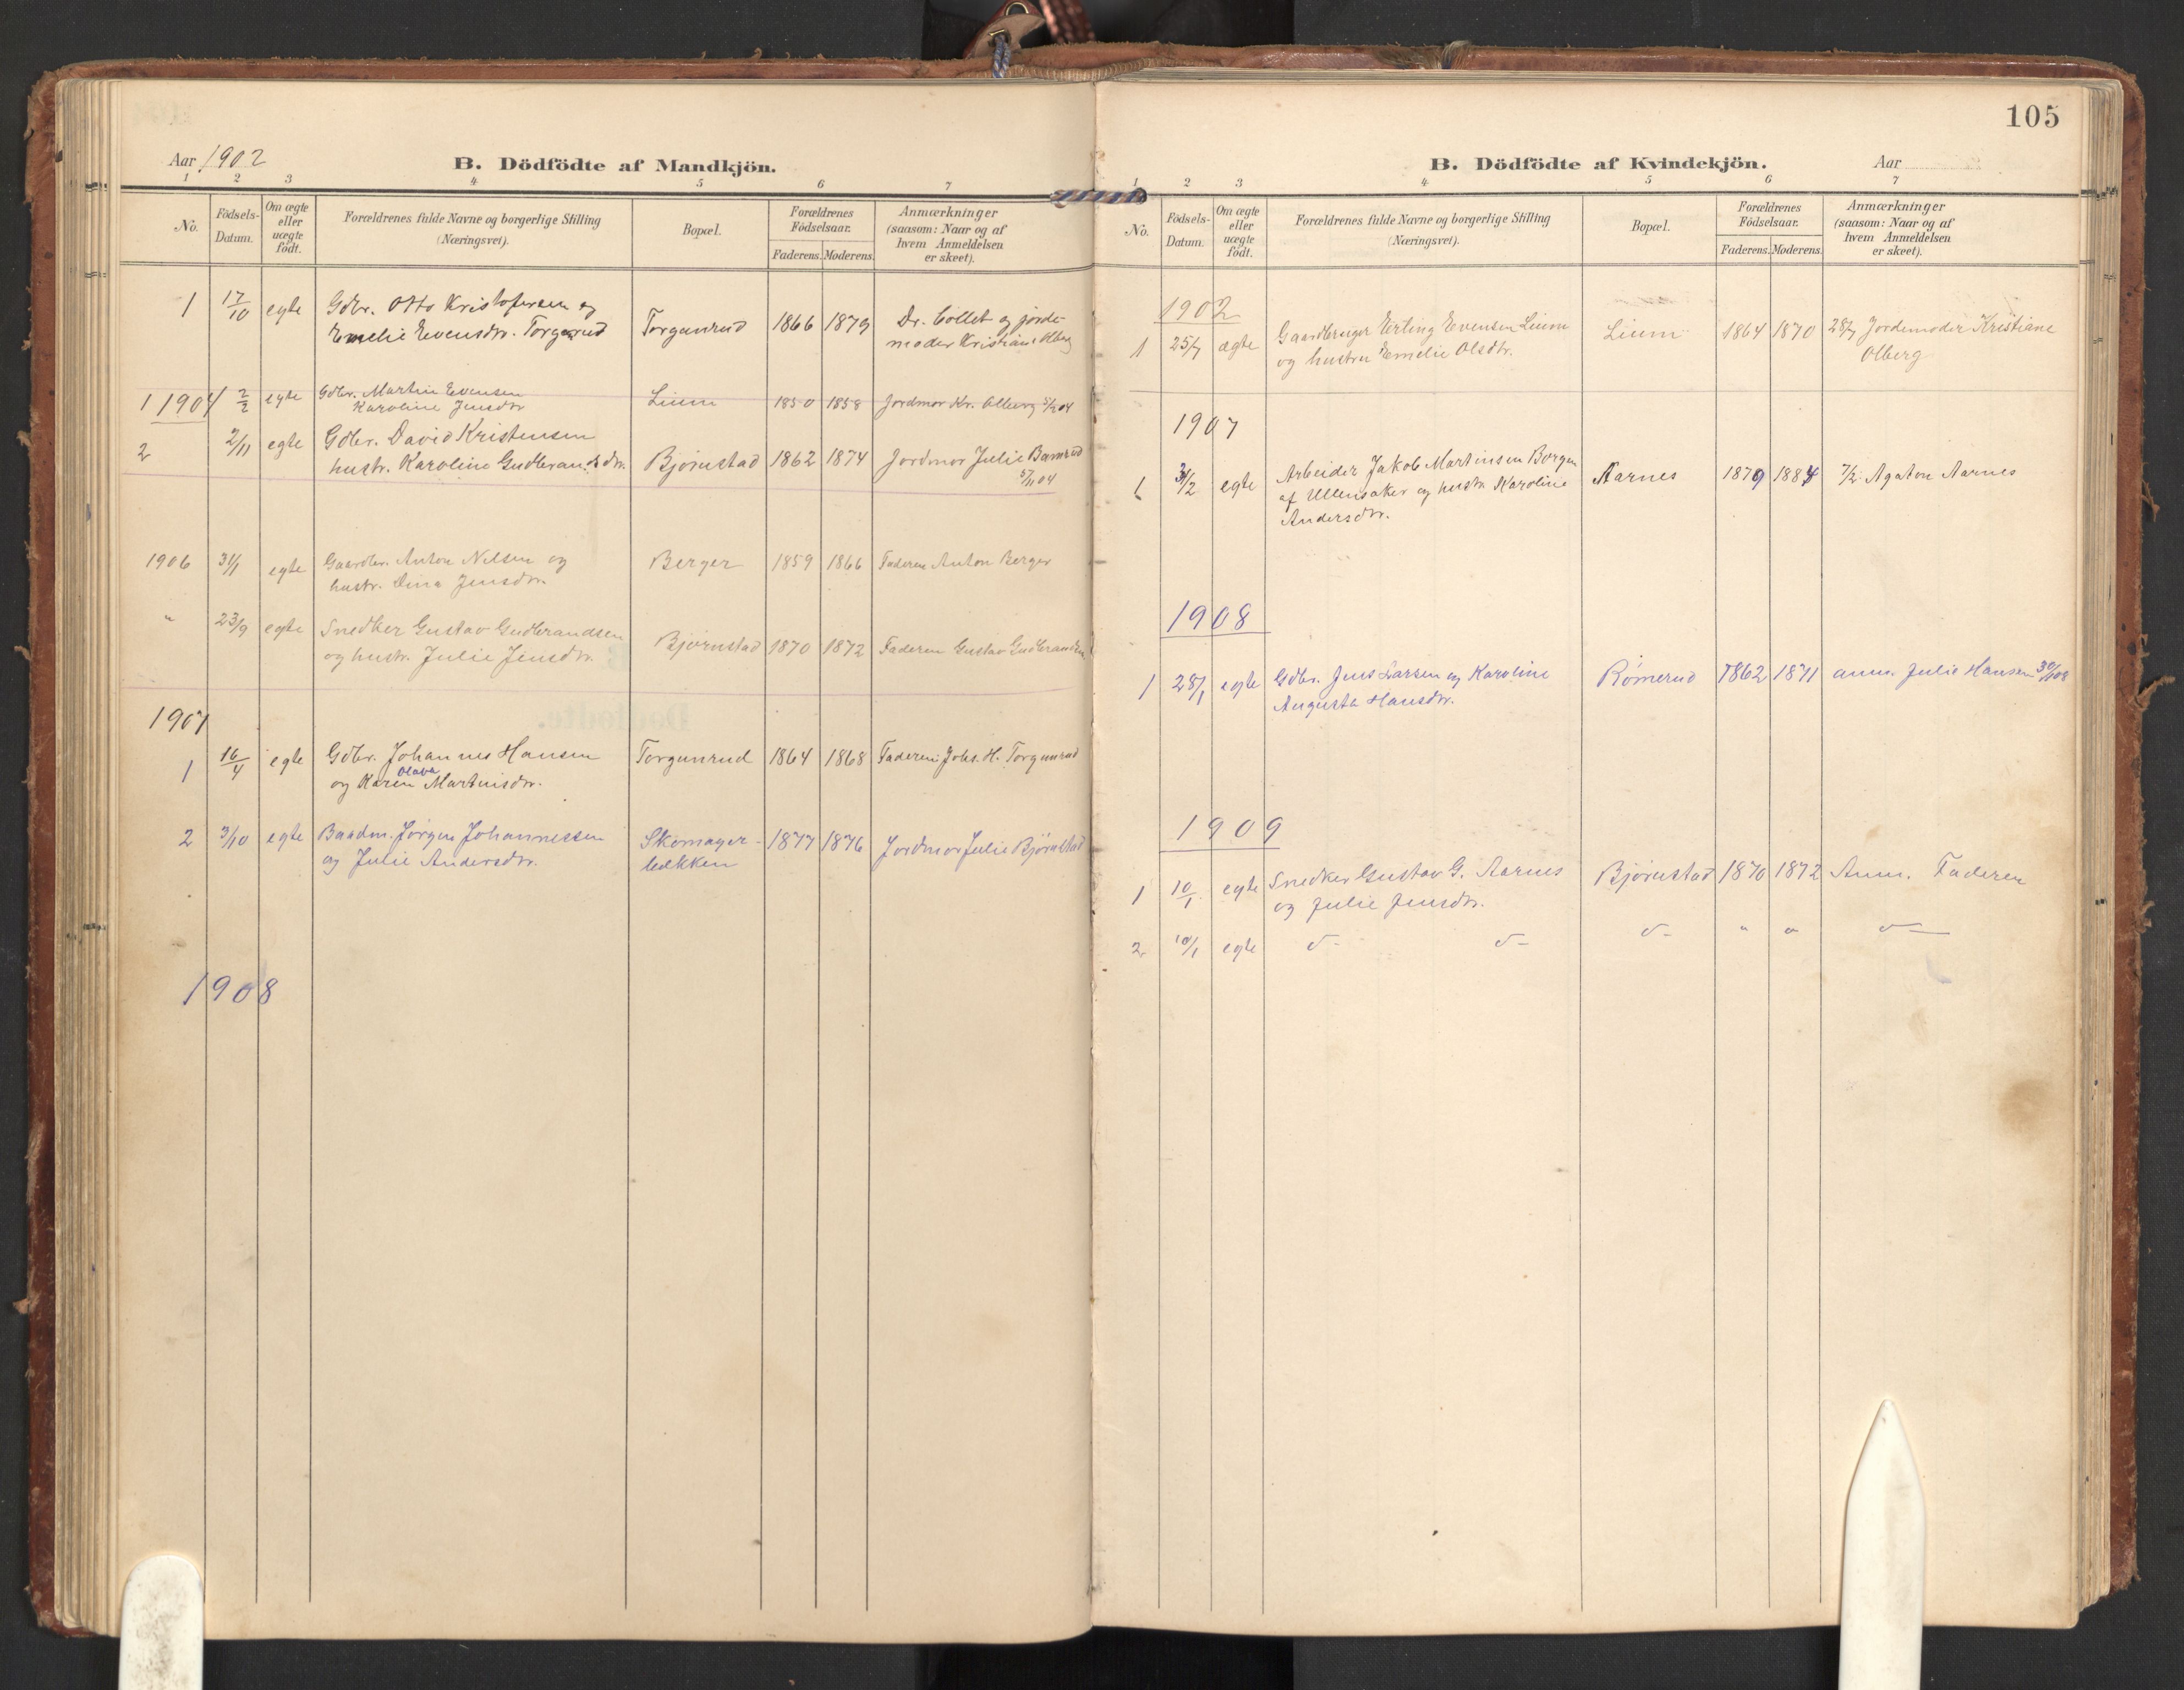 105
Aar 1902
B. Dödfödte af Mandkjön.
1 2 3 4 5 6 7
No.
Födsels-
Datum.
Om ægte
eller
uægte
födt.
Forældrenes fulde Navne og borgerlige Stilling
(Næringsvei).
Bopæl.
Forældrenes
Födselsaar.
Faderens. Moderens.
Anmærkninger
(saasom: Naar og af
hvem Anmeldelsen
er skeet).
1 17/10 egte Gdbr. Otto Kristofersen og Torgunrud 1866 1879 Dr. Collet og jorde-
Emelie Evensdtr. Torgunrud moder Kristiane Olberg
1 1904 2/2 egte Gdbr. Martin Evensen Lium 1850 1858 Jordmor Kr. Olberg 5/2 04
Karoline Jensdtr
2 2/11 egte Gdbr. David Kristensen
hustr. Karoline Gudbrandsdtr. Bjørnstad 1862 1874 Jordmor Julie Bamrud
5/11 04
1906 31/1 egte Gaardbr. Anton Nilsen og Berger 1859 1866 Faderen Anton Berger
hustr. Dina Jensdtr.
" 23/9 egte Snedker Gustav Gudbrandsen Bjørnstad 1870 1872 Faderen Gustav Gudbrandsen
og hustr. Julie Jensdtr.
1907
1 16/4 egte Gdbr. Johannes Hansen Torgunrud 1864 1868 Faderen: Johs. H. Torgunrud
Olava
og Karen Martinisdtr.
2 3/10 egte Baadm. Jørgen Johannessen Skomager- 1877 1876 Jordmor Julie Bjørnstad
og Julie Andersdtr. bækken
1908
B. Dödfödte af Kvindekjön.
Aar
1 2 3 4 5 6 7
No.
Födsels-
Datum.
Om ægte
eller
uægte
födt.
Forældrenes fulde Navne og borgerlige Stilling
(Næringsvei).
Bopæl.
Forældrenes
Födselsaar.
Faderens. Moderens.
Anmærkninger
(saasom: Naar og af
hvem Anmeldelsen
er skeet).
1902
1 25/7 ægte Gaardbruger Erling Evensen Lium Lium 1864 1870 28/7 Jordemoder Kristiane
og hustru Emelie Olsdtr. Olberg
1907
1 3/2 egte Arbeider Jakob Martinsen Borgen Aarnes 1879 1884 7/2 Agaton Aarnes
af Ullensaker og hustr. Karoline
Andersdtr.
1908
1 28/1 egte Gdbr. Jens Larsen og Karoline Rømerud 1862 1871 anm. Julie Hansen 30/1 08
Augusta Hansdtr.
1909
1 10/1 egte Snedker Gustav G. Aarnes Bjørnstad 1870 1872 Anm. Faderen
og Julie Jensdtr.
2 10/1 egte